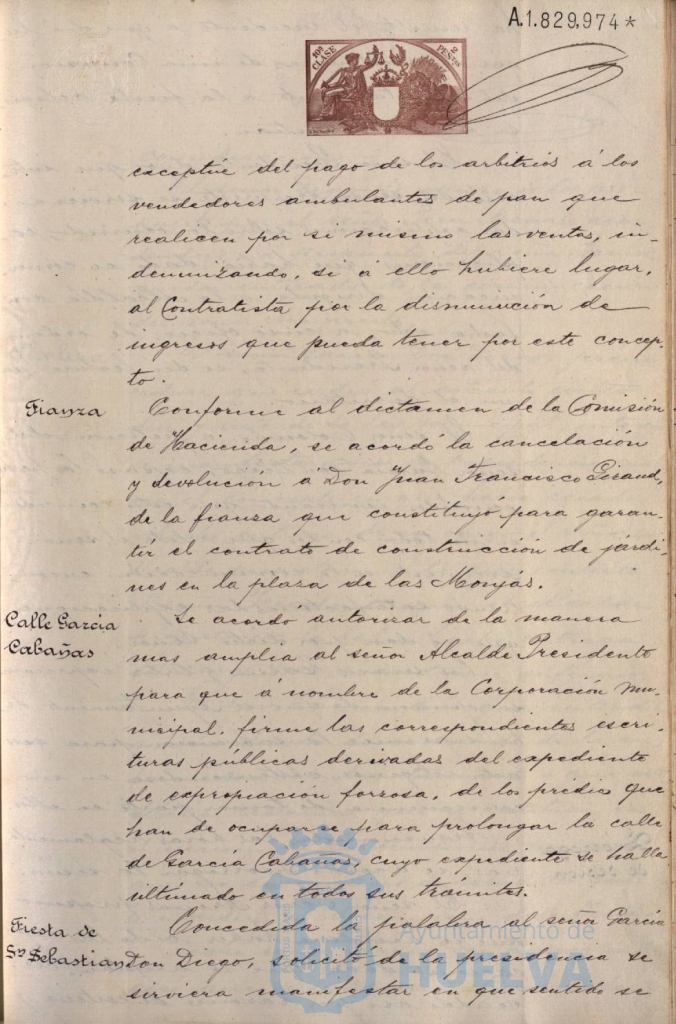 A.1.829,974*
10ª CLASE
2 PESETAS
exceptúe del pago de los arbitrios á los
vendedores ambulantes de pan que
realicen por si mismo las ventas, in-
demnizando, si á ello hubiere lugar,
al Contratista por la disminución de
ingresos que pueda tener por este concep-
to.
Fianza
Conforme al dictamen de la Comisión
de Hacienda, se acordó la cancelación
y devolución á Don Juan Francisco Giraud,
de la fianza que constituyó para garan-
tir el contrato de construcción de jardi-
nes en la plaza de las Monjas.
Calle García
Cabañas
Se acordó autorizar de la manera
mas amplia al señor Alcalde Presidente
para que á nombre de la Corporación mu-
nicipal, firme las correspondientes escri-
turas públicas derivadas del expediente
de expropiación forzosa, de los predios que
han de ocuparse para prolongar la calle
de García Cabañas, cuyo expediente se halla
ultimado en todos sus trámites.
Fiesta de
Sn Sebastian
Concedida la palabra al señor García
Don Diego, solicitó de la presidencia se
sirviera manifestar en que sentido se
Ayuntamiento de
HUELVA